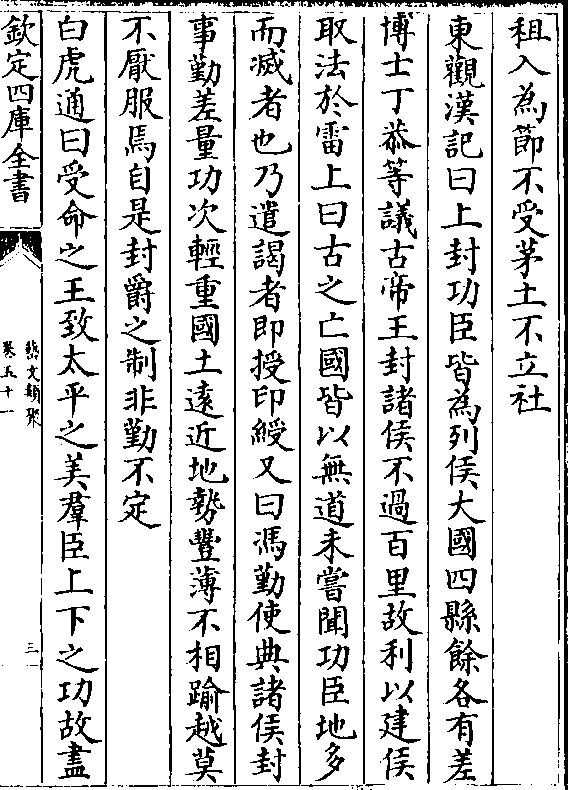 租入為節不受茅土不立社
東觀漢記曰上封功臣皆為列侯大國四縣餘各有差
博士丁恭等議古帝王封諸侯不過百里故利以建侯
取法於雷上曰古之亡國皆以無道未嘗聞功臣地多
而滅者也乃遣謁者即授印綬又曰馮勤使典諸侯封
事勤差量功次輕重國土遠近地勢豐薄不相踰越莫
不厭服焉自是封爵之制非勤不定
白虎通曰受命之王致太平之美羣臣上下之功故盡
欽定四庫全書
藝文類聚
卷五十一
三